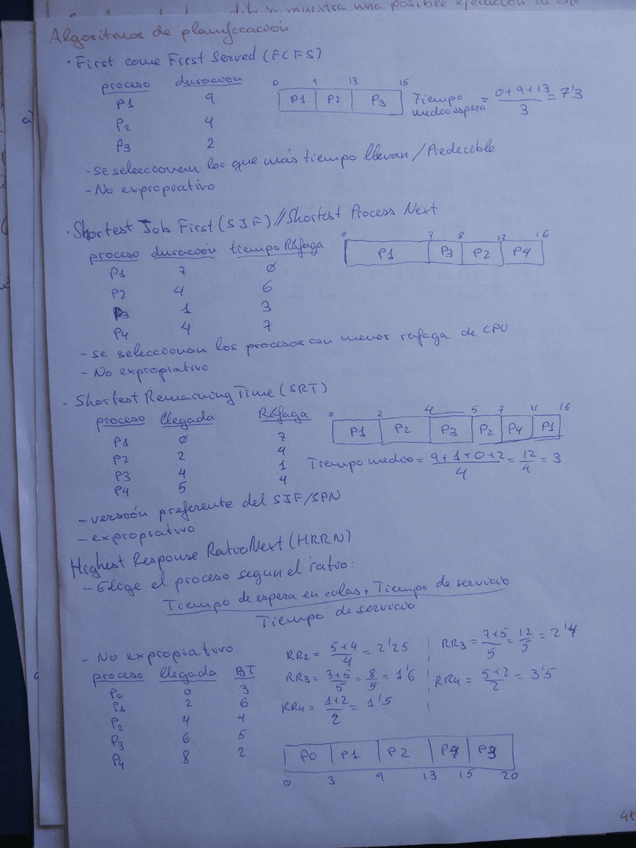 Algoritmos de planificación
· First come First Served (FCFS)
proceso duracion
P1 9
P2 4
P3 2
0 9 13 15
P1 P2 P3
Tiempo medio espera = 0+9+13 / 3 = 7'3
- se seleccionan los que más tiempo llevan / Predecible
- No expropiativo
· Shortest Job First (SJF) // Shortest Process Next
proceso duración tiempo Ráfaga
P1 7 0
P2 4 6
P3 1 3
P4 4 7
0 7 8 12 16
P1 P3 P2 P4
- se seleccionan los procesos con menor rafaga de CPU
- No expropiativo
· Shortest Remaining Time (SRT)
proceso llegada Ráfaga
P1 0 7
P2 2 4
P3 4 1
P4 5 4
0 2 4 5 7 11 16
P1 P2 P3 P2 P4 P1
Tiempo medio = 9+1+0+2 / 4 = 12 / 4 = 3
- versión preferente del SJF/SPN
- expropiativo
Highest Response Ratio Next (HRRN)
- Elige el proceso segun el ratio:
Tiempo de espera en colas + Tiempo de servicio
Tiempo de servicio
- No expropiativo.
proceso llegada BT
P0 0 3
P1 2 6
P2 4 4
P3 6 5
P4 8 2
RR2 = 5+4 / 4 = 2'25
RR3 = 3+5 / 5 = 8 / 5 = 1'6
RR4 = 1+2 / 2 = 1'5
RR3 = 7+5 / 5 = 12 / 5 = 2'4
RR4 = 5+2 / 2 = 3'5
P0 P1 P2 P4 P3
0 3 9 13 15 20